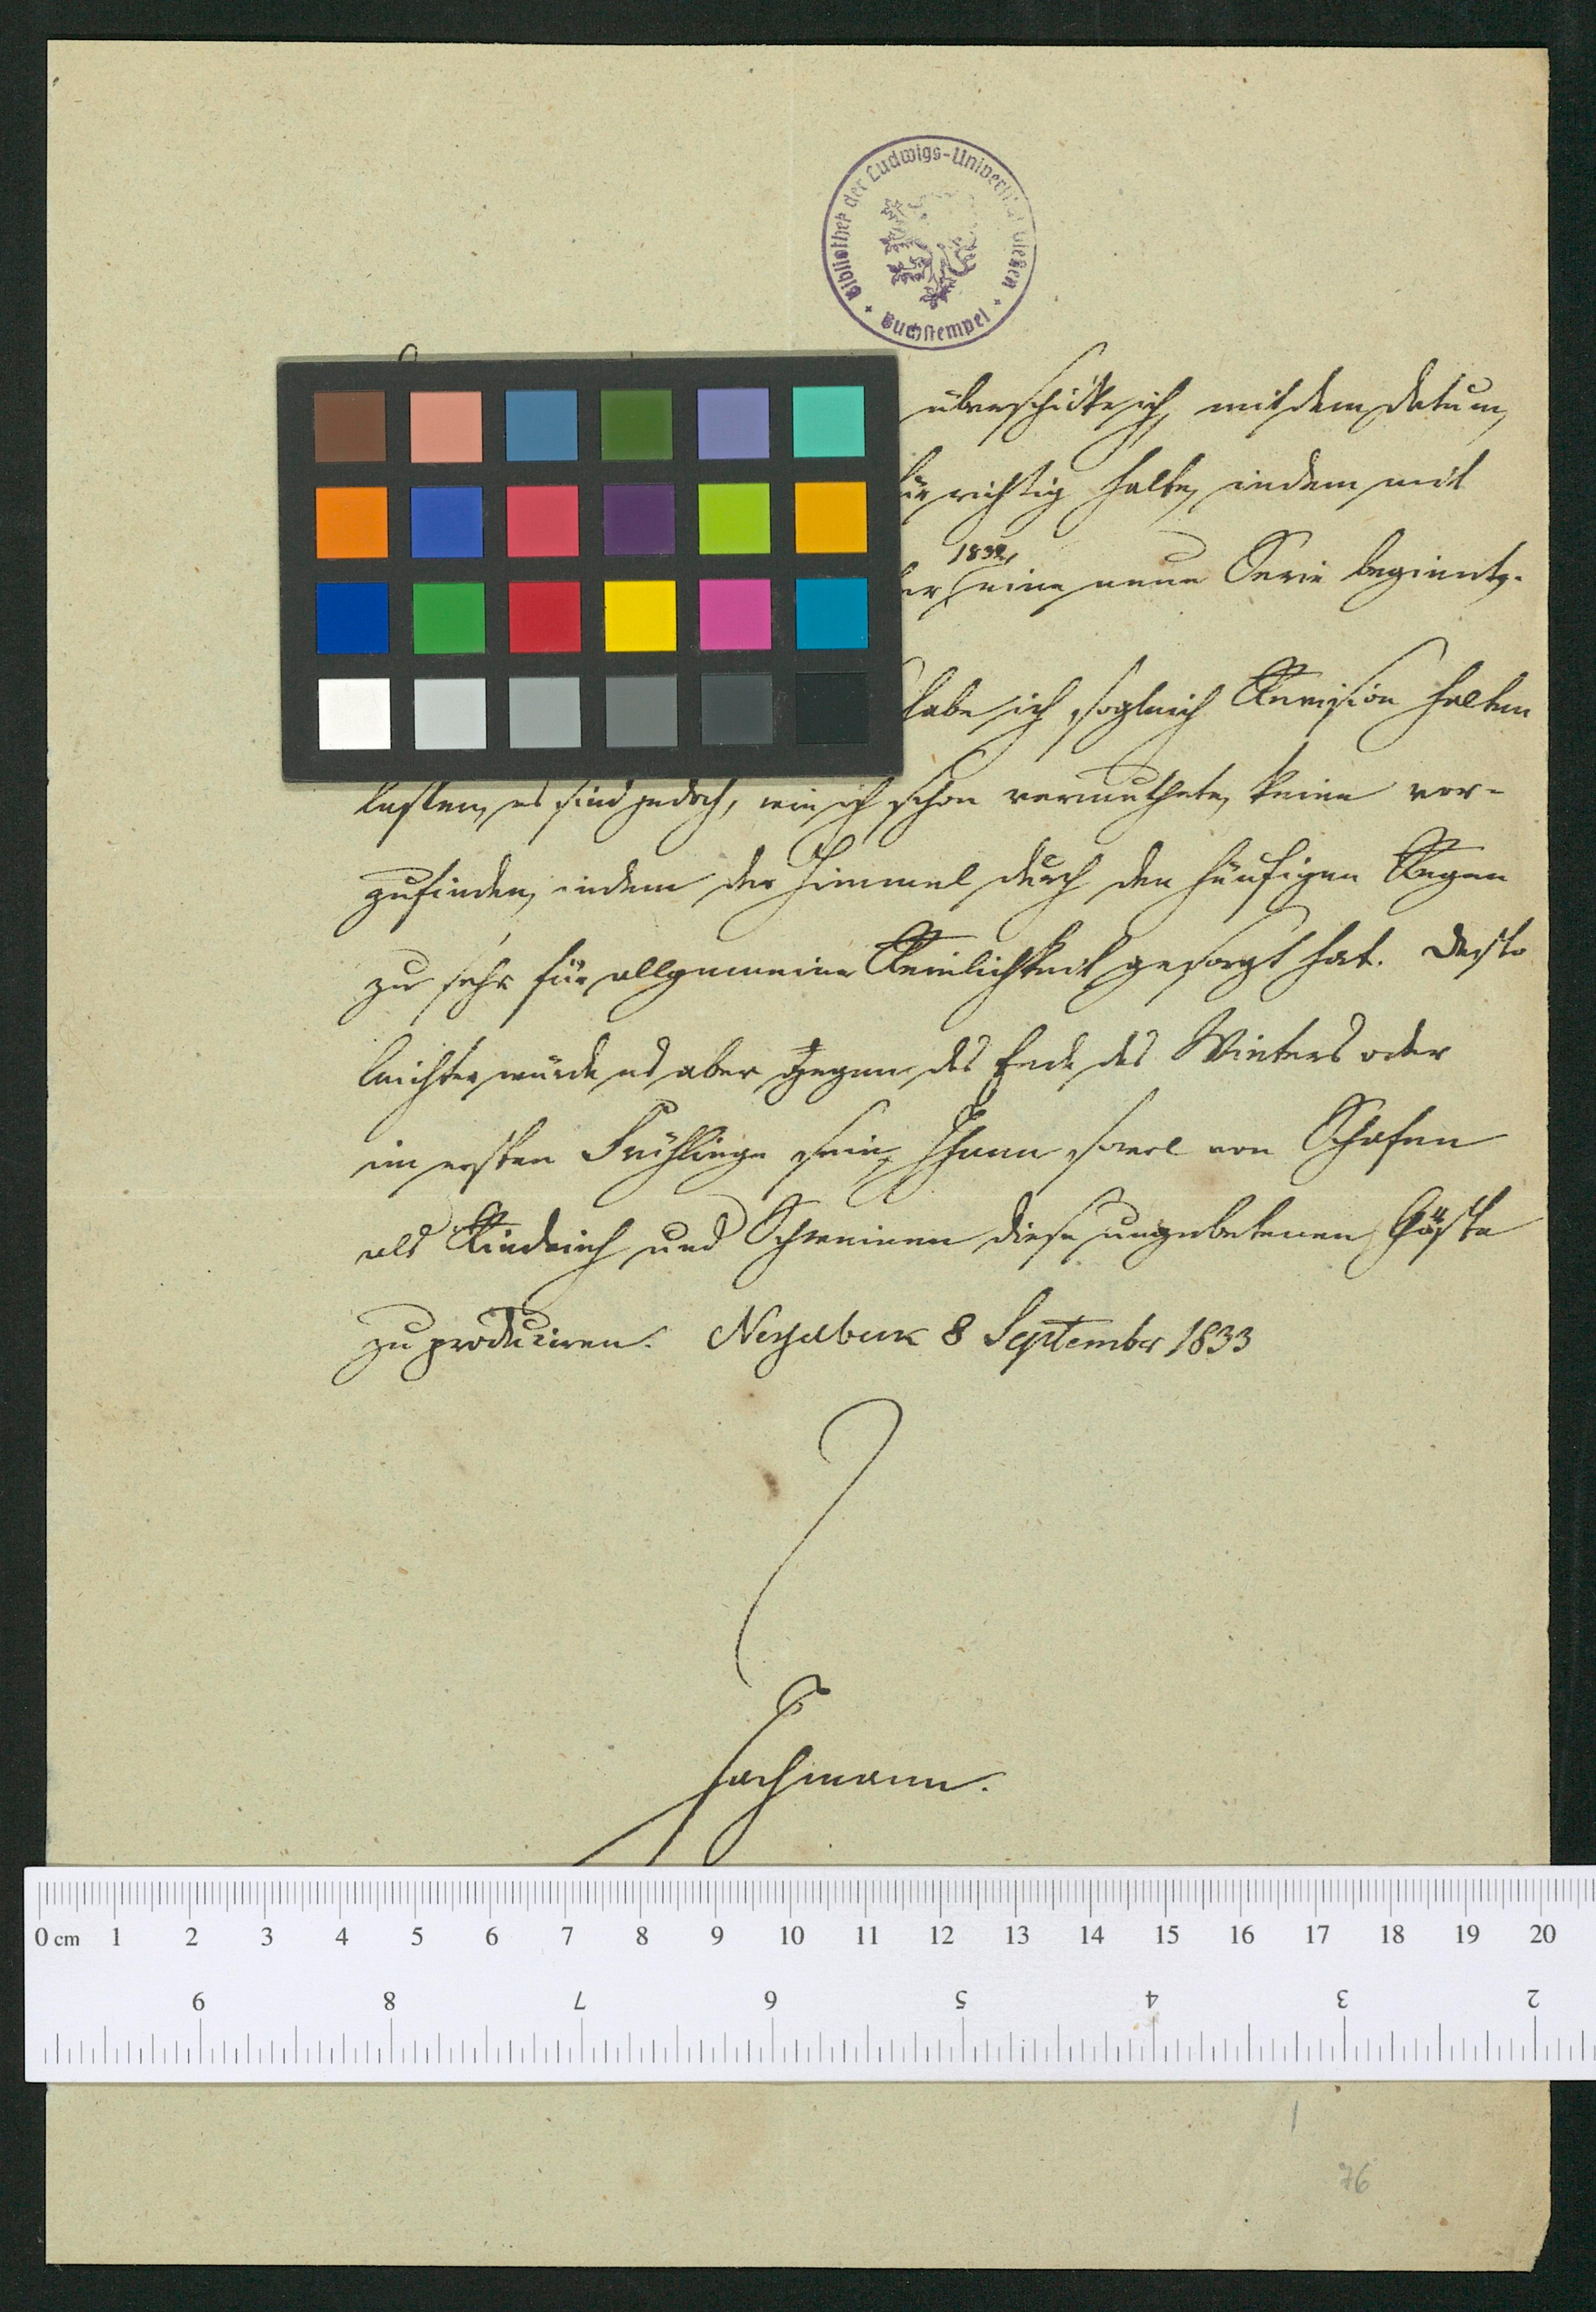 Bibliothek der Ludwigs-Universität Gießen
Buchstempel
überschicke ich, mit dem Datum,
für richtig halte, indem mit
1832,
eine neue Serie beginnt.
habe ich sogleich Revision halten
lassen, es sind jedoch, wie ich schon vermuthete, keine vor-
zufinden, indem der Himmel durch den häufigen Regen
zu sehr für allgemeine Reinlichkeit gesorgt hat. Desto
leichter würde es aber gegen das Ende des Winters oder
im ersten Frühlinge sein, Ihnen sowol von Schafen
als Rindvieh und Schweinen diese ungebetenen Gäste
zu produciren. 8 September 1833
0 cm 1 2 3 4 5 6 7 8 9 10 11 12 13 14 15 16 17 18 19 20
9 8 7 6 5 4 3 2
76